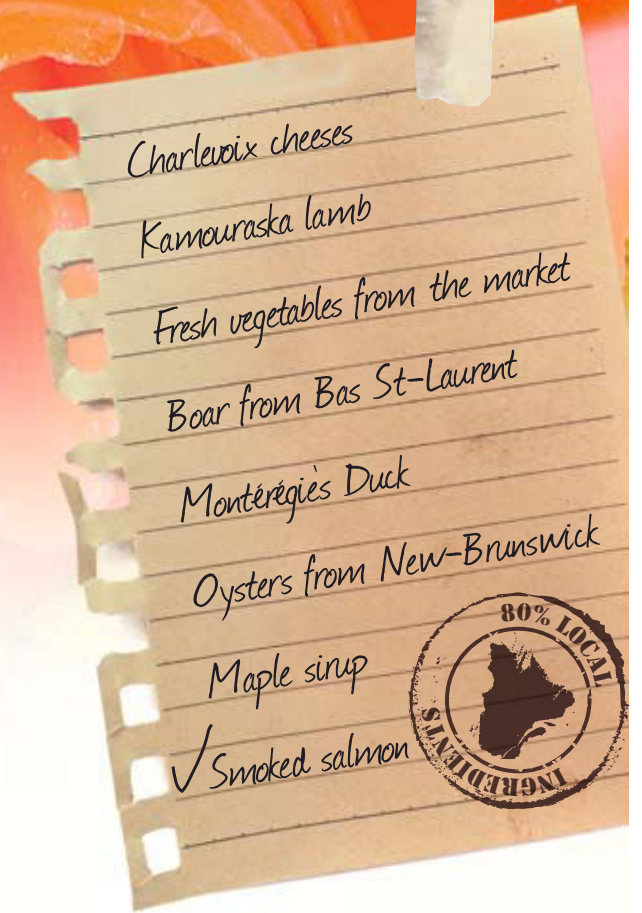 Charlevoix cheeses
Kamouraska lamb
Fresh vegetables from the market
Boar from Bas St-Laurent
Montérégiès Duck
Oysters from New-Brunswick
Maple sirup
✓ Smoked salmon
80% LOCAL
INGREDIENTS